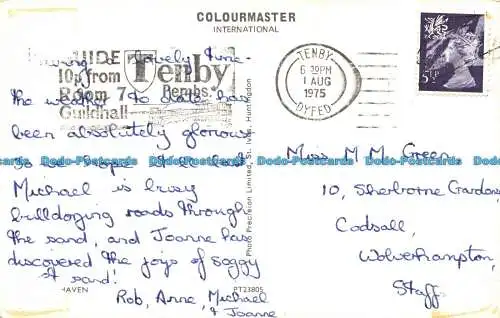 COLOURMASTER
INTERNATIONAL
GUIDE
10p from
Room 7
Guildhall
Tenby
Pembs.
TENBY
6 30PM
1 AUG
1975
DYFED
5½P
Having a lovely time -
the weather to date has
been absolutely glorious
so we hope it'll last
Michael is busy
bulldozing roads through
the sand, and Joanne has
discovered the joys of soggy
sand!
Rob, Anne, Michael
& Joanne
Miss M M Green
10, Sherborne Gardens
Codsall,
Wolverhampton,
Staffs
Photo Precision Limited, St. Ives, Huntingdon
HAVEN
PT23805
Dodo-Postcards Dodo-Postcards Dodo-Postcards Dodo-Postcards Dodo-Postcards